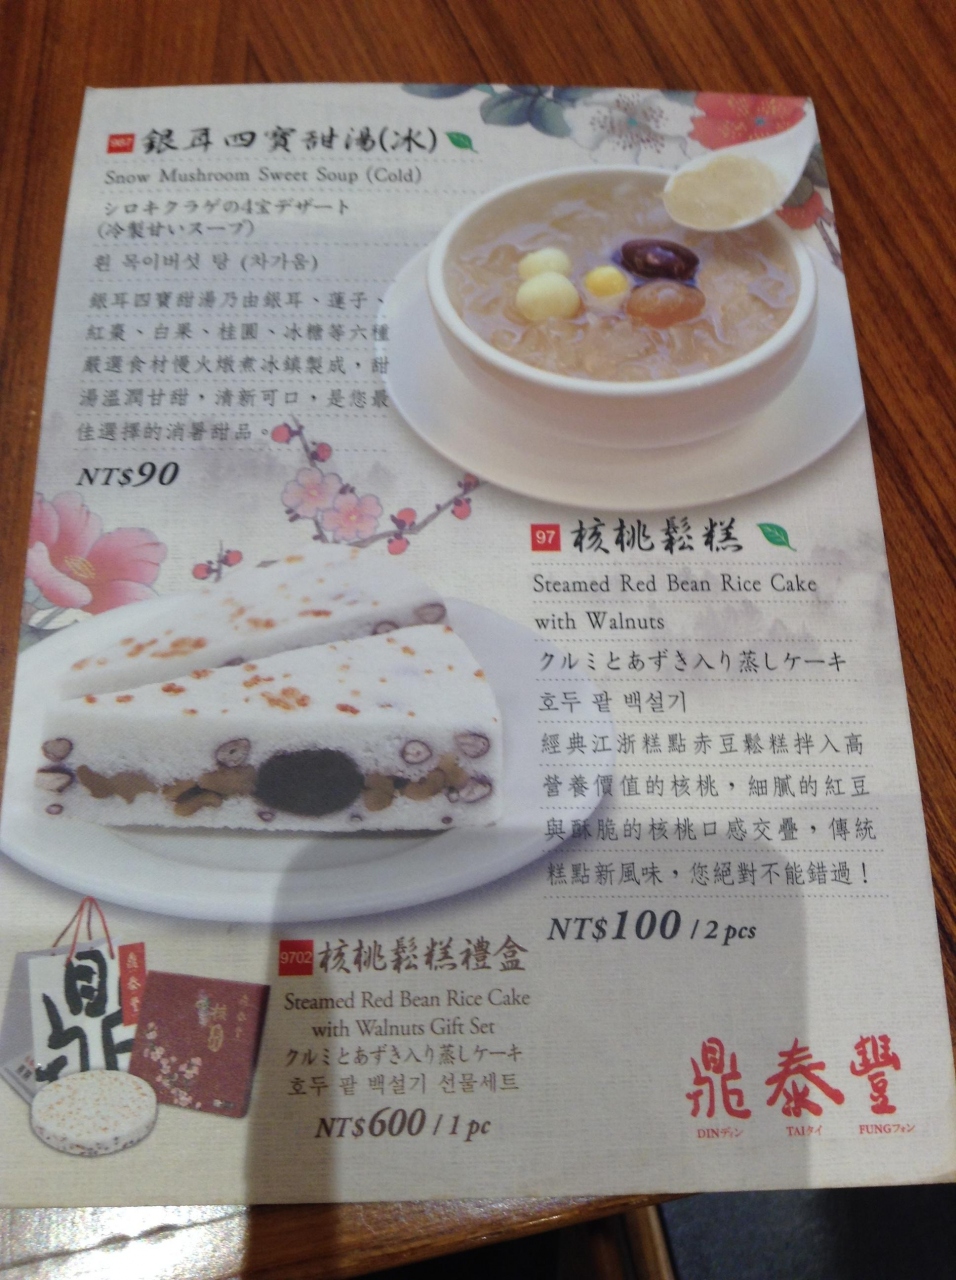 987 銀耳四寶甜湯(冰)
Snow Mushroom Sweet Soup (Cold)
シロキクラゲの4宝デザート
(冷製甘いスープ)
흰 목이버섯 탕 (차가움)
銀耳四寶甜湯乃由銀耳、蓮子、
紅棗、白果、桂圓、冰糖等六種
嚴選食材慢火燉煮冰鎮製成,甜
湯溫潤甘甜,清新可口,是您最
佳選擇的消暑甜品。
NT$90
97 核桃鬆糕
Steamed Red Bean Rice Cake
with Walnuts
クルミとあずき入り蒸しケーキ
호두 팥 백설기
經典江浙糕點赤豆鬆糕拌入高
營養價值的核桃,細膩的紅豆
與酥脆的核桃口感交疊,傳統
糕點新風味,您絕對不能錯過!
NT$100 / 2 pcs
9702 核桃鬆糕禮盒
Steamed Red Bean Rice Cake
with Walnuts Gift Set
クルミとあずき入り蒸しケーキ
호두 팥 백설기 선물세트
NT$600 / 1 pc
鼎
鼎泰豐
鼎泰豐
DINディン TAIタイ FUNGフォン